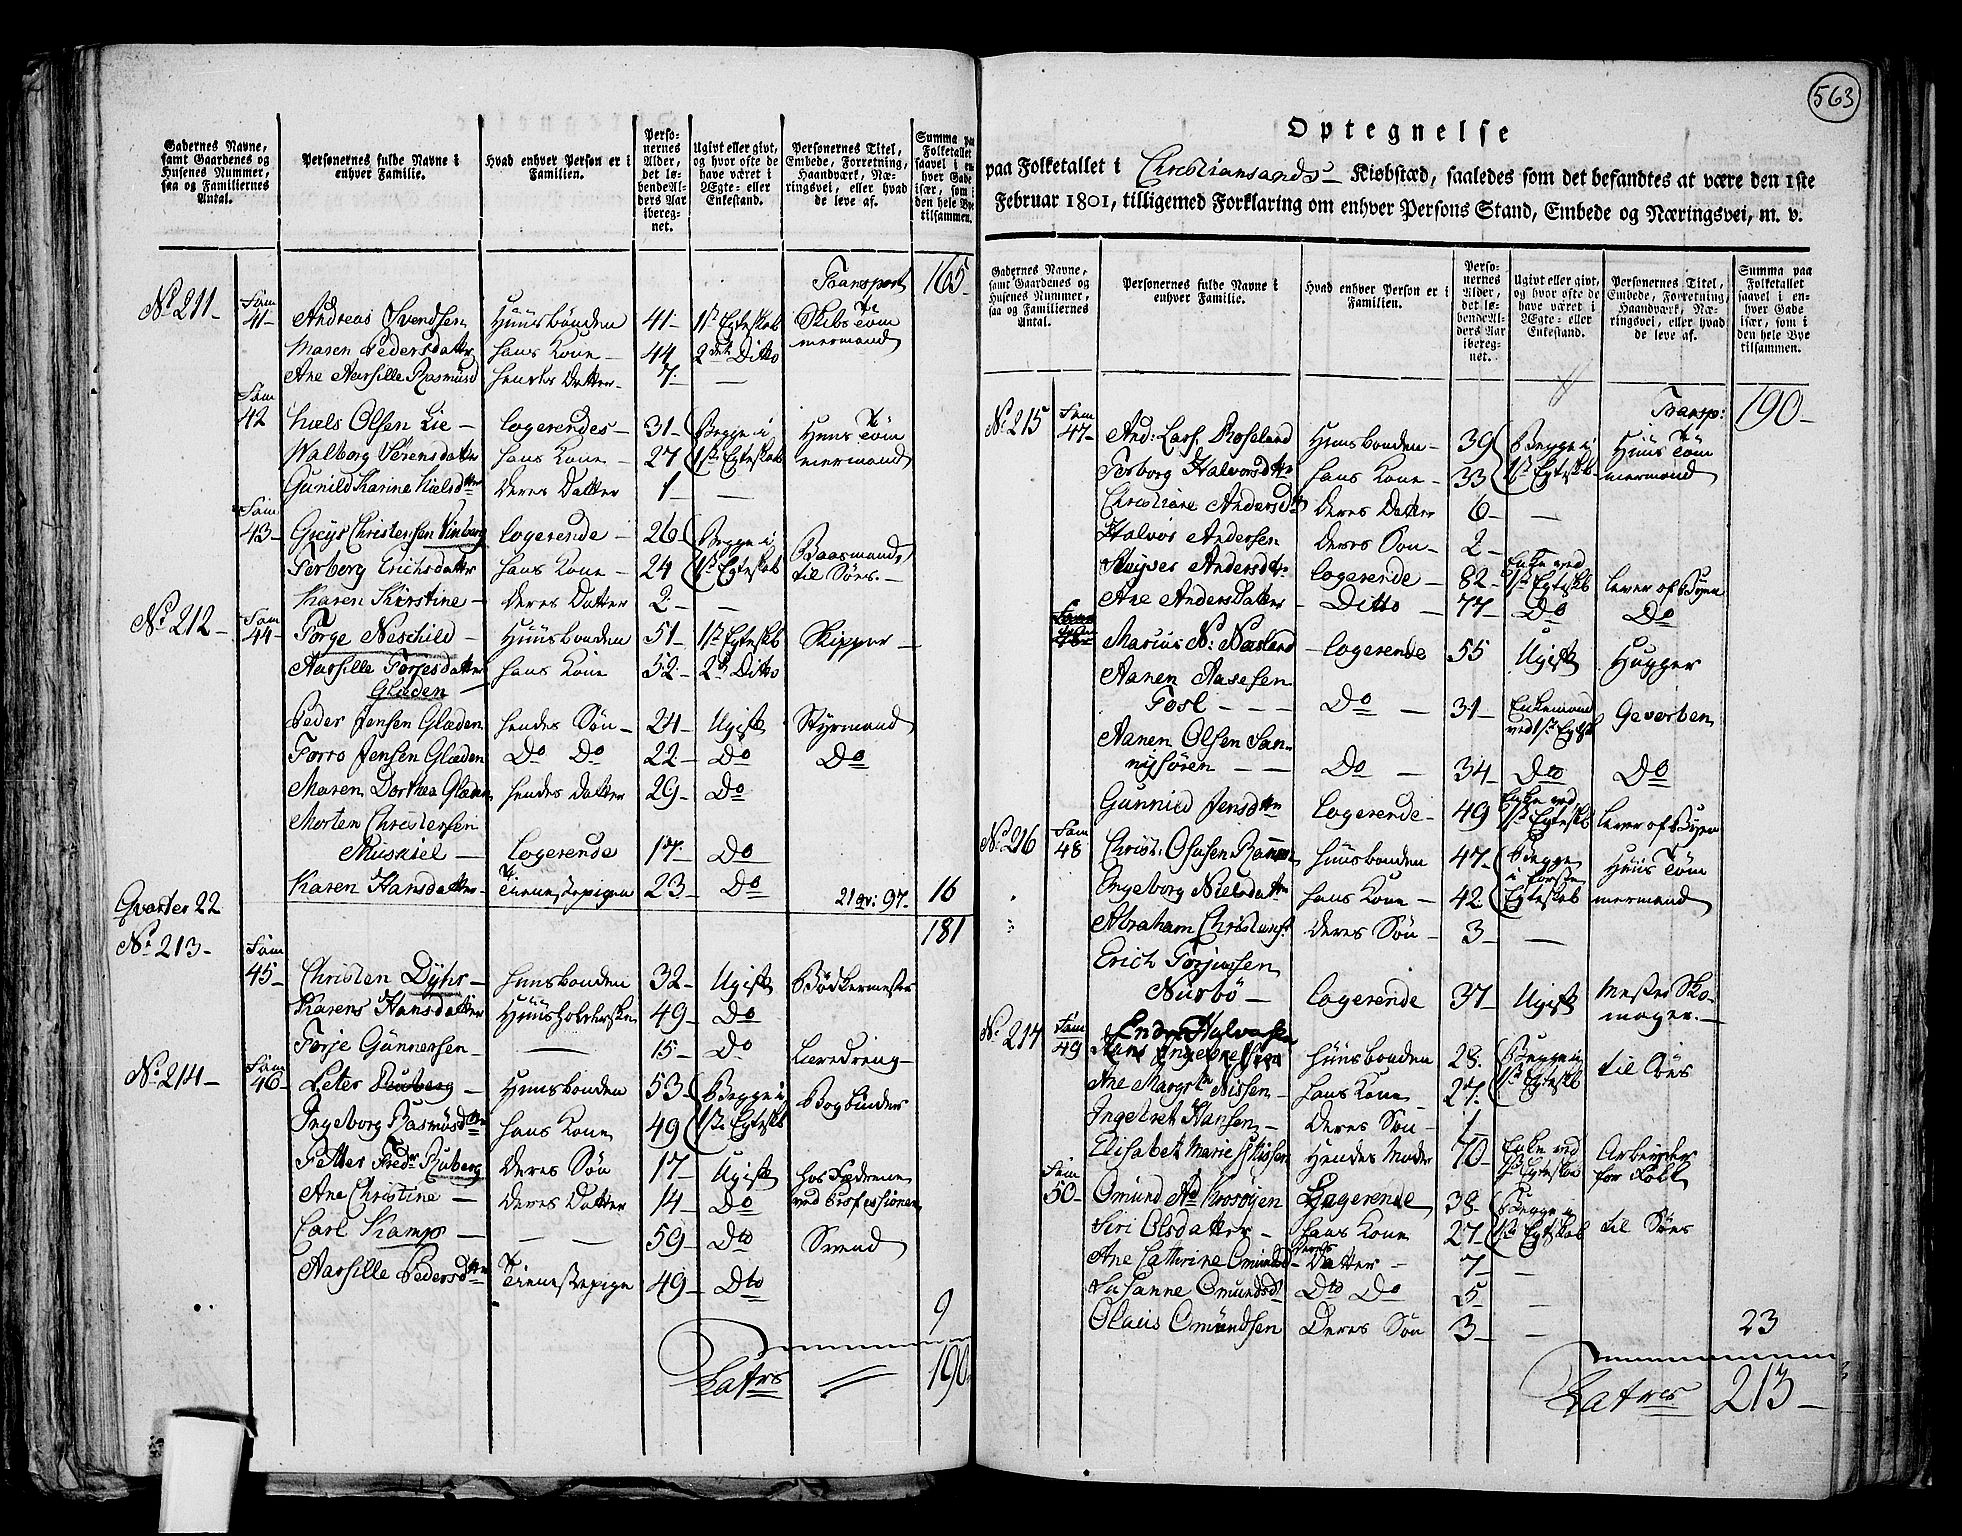 563
Gadernes Navne, samt Gaardenes og Husenes Nummer, saa og Familiernes Antal.
Personernes fulde Navne i enhver Familie.
Hvad enhver Person er i Familien.
Personernes Alder, det løbende Alders Aar iberegnet.
Ugivt eller givt, og hvor ofte de have været i Ægte- eller Enkestand.
Personernes Titel, Embede, Forretning, Haandværk, Næringsvei, eller hvad de leve af.
Summa paa Folketallet saavel i enhver Gade især, som i den hele Bye tilsammen.
Transport 165
No 211 Fam 41 Andreas Svendsen Huusbonden 41 1st Egteskab Skibs Tømmermand
Maren Pedersdatter hans Kone 44 2det Ditto
Ane Aarsille Rasmusd hendes Datter 7 —
Fam 42 Niels Olsen Lie Logerendes 31 Begge i Huus Tømmermand
Walborg Sørensdatter hans Kone 27 1st Egteskab
Gunild Karine Nielsdtter deres Datter 1 —
Fam 43 Greys Christensen Vinberg Logerende 26 Begge i Baasmands
Torborg Erichsdatter hans Kone 24 1st Egteskab til Søes
Karen Kirstine deres Datter 2 —
No 212 Fam 44 Torge Neschild Huusbonden 51 1st Egteskb Skipper
Aarsille Torjesdatter hans Kone 52 2d Ditto
Gladen
Peder Jensen Glæden hendes Søn 24 Ugift Styrmand
Torro Jensen Glæden Do Do 22 Do Do
Maren Dorthea Glæden hendes datter 29 Do
Morten Christensen
Muskiel Logerende 17 Do
Karen Hansdatter Tieneste pigen 23 Do 21 qv: 97. 16
Qvarter 22 181
No 213 Fam 45 Christen Dyhr Huusbonden 32 Ugift Bødkermester
Karens Hansdatter Huusholderske 49 Do
Torje Gunnersen — 15 Do Læredreng
No 214 Fam 46 Peter Ruberg Huusbonden 53 Begge i Bogbinder
Ingeborg Rasmusdtter hans Kone 49 1st Egteskb
Petter Fredr Ruberg deres Søn 17 Ugift hos Faderen
Ane Christine deres Datter 14 Do ved Professionen
Carl Kamp — 59 Dto Svend
Aarsille Pedersdtter Tieneste pige 49 Dto
9
Latus 190
Optegnelse
paa Folketallet i Christiansands Kiøbstæd, saaledes som det befandtes at være den 1ste
Februar 1801, tilligemed Forklaring om enhver Persons Stand, Embede og Næringsvei, m. v.
Gadernes Navne, samt Gaardenes og Husenes Nummer, saa og Familiernes Antal.
Personernes fulde Navne i enhver Familie.
Hvad enhver Person er i Familien.
Personernes Alder, det løbende Alders Aar iberegnet.
Ugivt eller givt, og hvor ofte de have været i Ægte- eller Enkestand.
Personernes Titel, Embede, Forretning, Haandværk, Næringsvei, eller hvad de leve af.
Summa paa Folketallet saavel i enhver Gade især, som i den hele Bye tilsammen.
Transp: 190
No 215 Fam 47 And: Lars. Roseland Huusbonden 39 Begge i Huus Tømmermand
Torborg Halvorsdtter hans Kone 33 1st Egteskb
Christiane Andersdtr deres Datter 6 —
Halvor Andersen deres Søn 2
Andersdtr Logerende 82 Enke ved 1st Egteskb lever af Byen
Ane Andersdatter Ditto 77 Do Do
Marius N: Næsland Logerende 55 Ugift Hugger
Aanen Aasesen
Fosl Do 31 Enkemand ved 1st Egtsb Gevorben
Aanen Olsen San-
nissøren Do 34 Dto Do
Gunnild Jensdtr Logerende 49 Enke ved 1st Egteskb lever af Byen
No 216 Fam 48 Christ: Olusen Huusbonden 47 Begge i første Egteskab Huus Tømmermand
Engeborg Nielsdtr hans Kone 42
Abraham Christians: deres Søn 3 —
Erich Torjussen
Nursbø Logerende 37 Ugift Mester Skomager.
No 217 Fam 49 Endre Halvorsen
Hans Ingebretsen Huusbonden 28 Begge i 1st Egteskb til Søes
Ane Margrte Nissen hans Kone 27
Ingebret Hansen Deres Søn 1
Elisabet Marie Nissen Hendes Moder 70 Enke ved 1st Egteskab Arbeyder for Folk
Fam 50 Omund Ad Krosøyen Logerende 38 Begge i 1st Egteskab til Søes
Siri Olsdatter hans Kone 27
Ane Cathrine Omundsd Deres Datter 7 —
Susanne Omundsd Dto Do 5 —
Olaus Omundsen Deres Søn 3 —
23
Latus 213